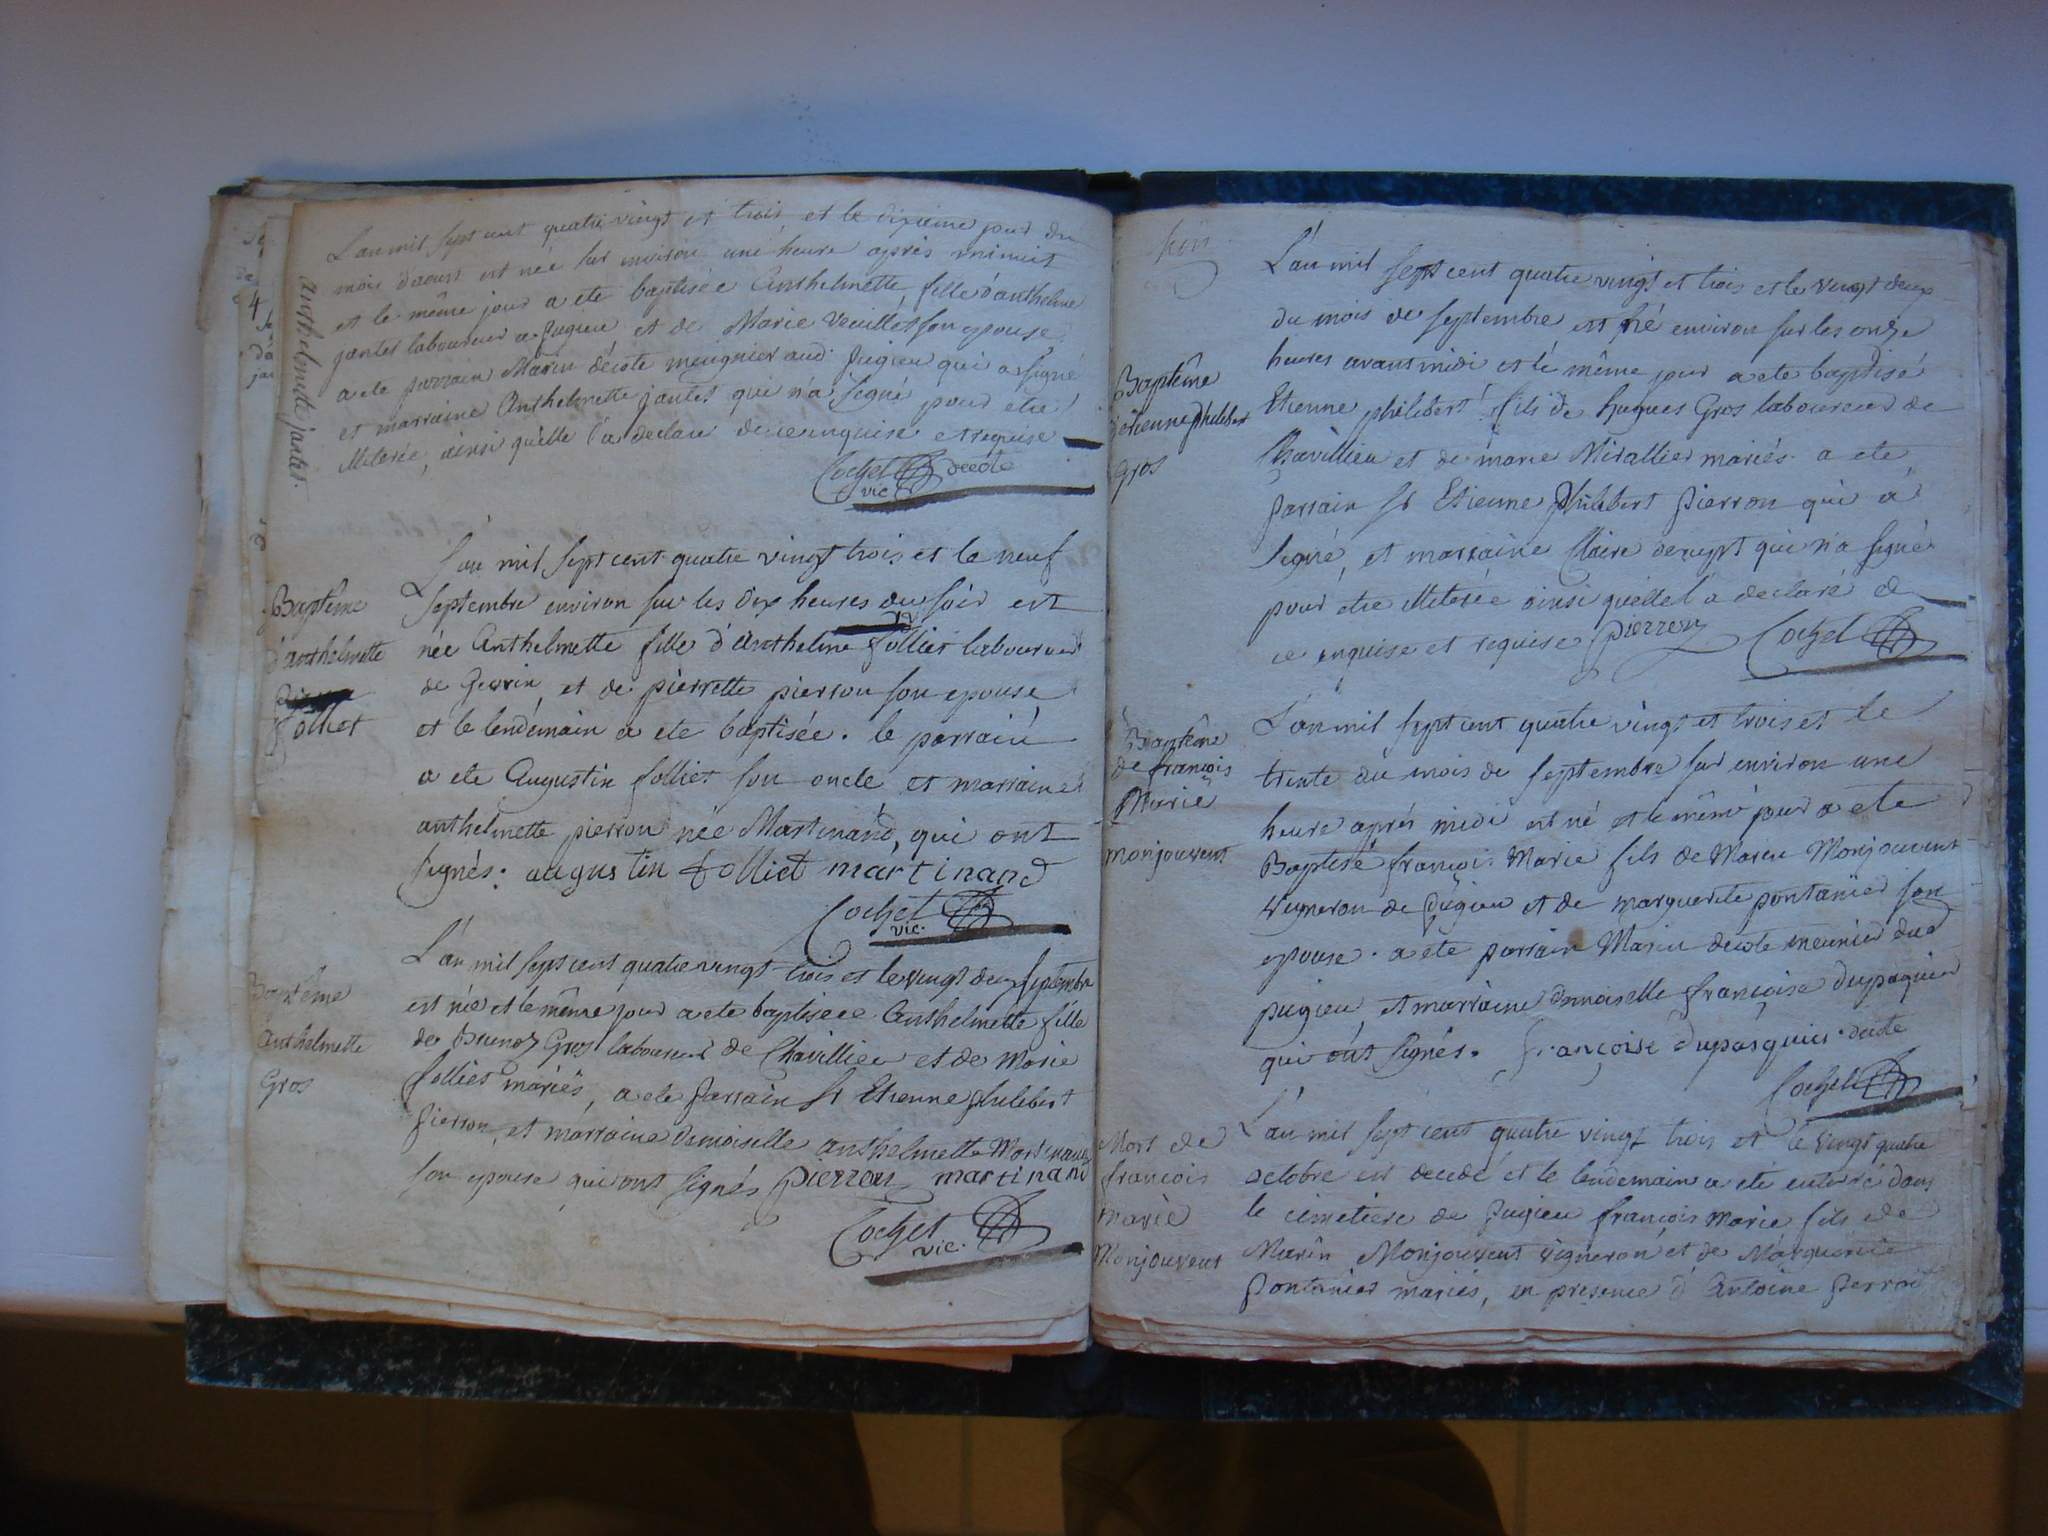 L'an mil sept cent quatre vingt et trois et le dixieme jour du
mois d'aoust est née sur environ une heure après minuit
et le même jour a ete baptisée Anthelmette fille d'anthelme
jantet laboureur a pugieu et de Marie Veuillet son epouse,
a ete parrain Marin decote meugnier aud: pugieu qui a signé
et marraine Anthelmette jantet qui n'a signé pour etre
illiterée, ainsi quelle l'a declaré de ce enquise et requise
Cochet decote
vic.
anthelmette jantet.
L'an mil sept cent quatre vingt trois et le neuf
septembre environ sur les dix heures du soir est
née Anthelmette fille d'Anthelme folliet laboureur
de Gevrin et de pierrette pierron son epouse
et le lendemain a ete baptisée. le parrain
a ete Augustin folliet son oncle et marraine
anthelmette pierron née Martinand, qui ont
signés. augustin folliet martinand
Cochet
vic.
Baptême
d'anthelmette
folliet
L'an mil sept cent quatre vingt trois et le vingt deux septembre
est née et le même jour a ete baptisée Anthelmette fille
de Brunoz Gros laboureur de Chavillieu et de Marie
folliet mariés, a ete parrain Sr Etienne philibert
pierron, et marraine demoiselle anthelmette Martinand
son epouse qui ont signés pierron martinand
Cochet
vic.
Baptême
anthelmette
Gros
L'an mil sept cent quatre vingt et trois et le vingt deux
du mois de septembre est né environ sur les onze
heures avant midi et le même jour a ete baptisé
Etienne philibert fils de hugues Gros laboureur de
Chavillieu et de marie Mirallier mariés. a ete
parrain Sr Etienne Philibert pierron qui a
signé, et marraine Claire derupt qui n'a signé
pour etre illiterée ainsi quelle l'a declaré de
ce enquise et requise pierron Cochet
Baptême
d'etienne philibert
Gros
L'an mil sept cent quatre vingt et trois et le
trente du mois de septembre sur environ une
heure après midi est né et le même jour a ete
Baptisé françois Marie fils de Marin Monjouvent
vigneron de pugieu et de marguerite pontanier son
epouse. a ete parrain Marin decote meunier dud
pugieu, et marraine demoiselle françoise dupasquier
qui ont signés. françoise dupasquier decote
Cochet
Baptême
de françois
Marie
monjouvent
L'an mil sept cent quatre vingt trois et le vingt quatre
octobre est decedé et le lendemain a eté enterré dans
le cimetiere de pugieu françois marie fils de
Marin Monjouvent vigneron et de Marguerite
pontanier mariés, en presence d'Antoine perret
Mort de
françois
marie
Monjouvent